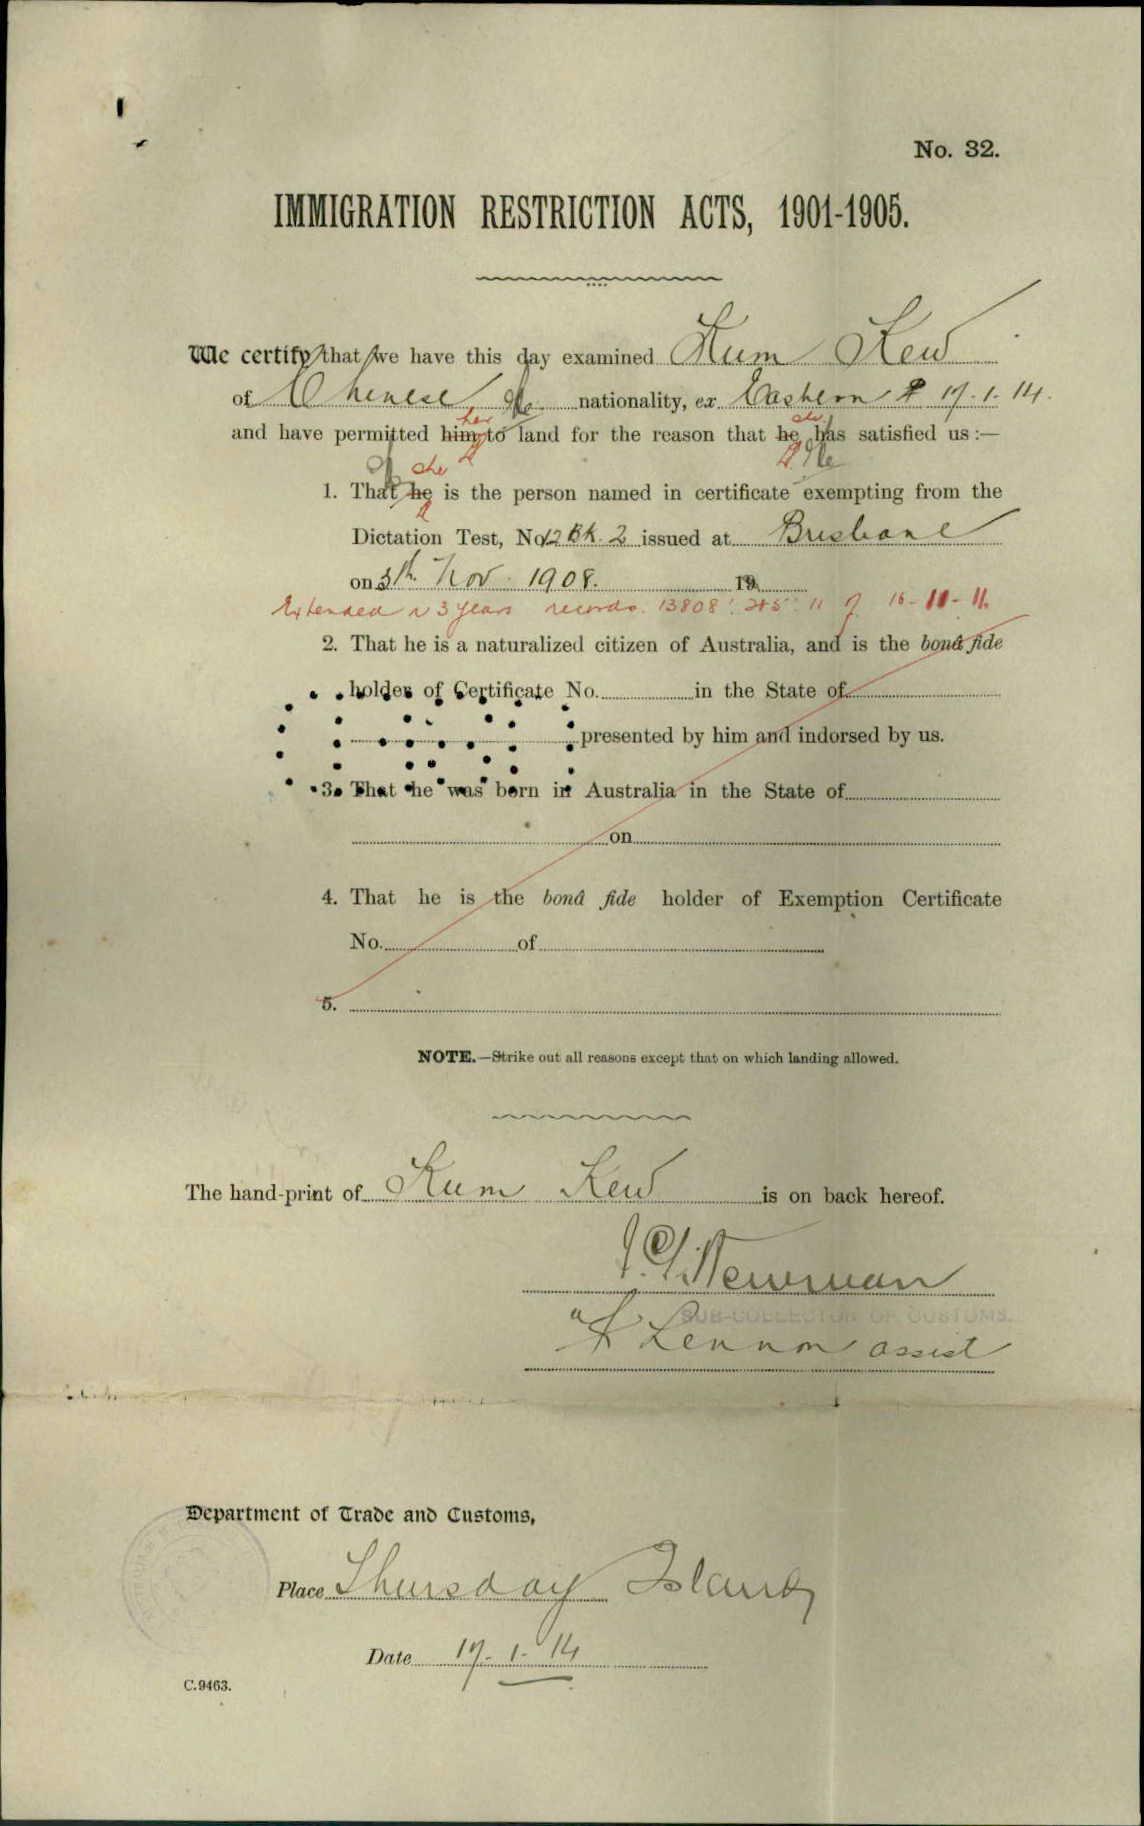 No. 32.
IMMIGRATION RESTRICTION ACTS, 1901-1905.
We certify that we have this day examined Kum Kew
of Chinese nationality, ex Eastern 17.1.14.
her she
and have permitted him to land for the reason that he has satisfied us :—
she
1. That he is the person named in certificate exempting from the
Dictation Test, No. 12 Bk. 2 issued at Brisbane
on 5th Nov. 1908. 19
Extended 3 years records. 13808 11 of 16-11-11.
2. That he is a naturalized citizen of Australia, and is the bonâ fide
holder of Certificate No. in the State of
presented by him and indorsed by us.
3. That he was born in Australia in the State of
on
4. That he is the bonâ fide holder of Exemption Certificate
No. of
5.
NOTE.—Strike out all reasons except that on which landing allowed.
The hand-print of Kum Kew is on back hereof.
Newman
SUB-COLLECTOR OF CUSTOMS.
Lennon assist
Department of Trade and Customs,
Place Thursday Island
Date 17-1-14
C.9463.